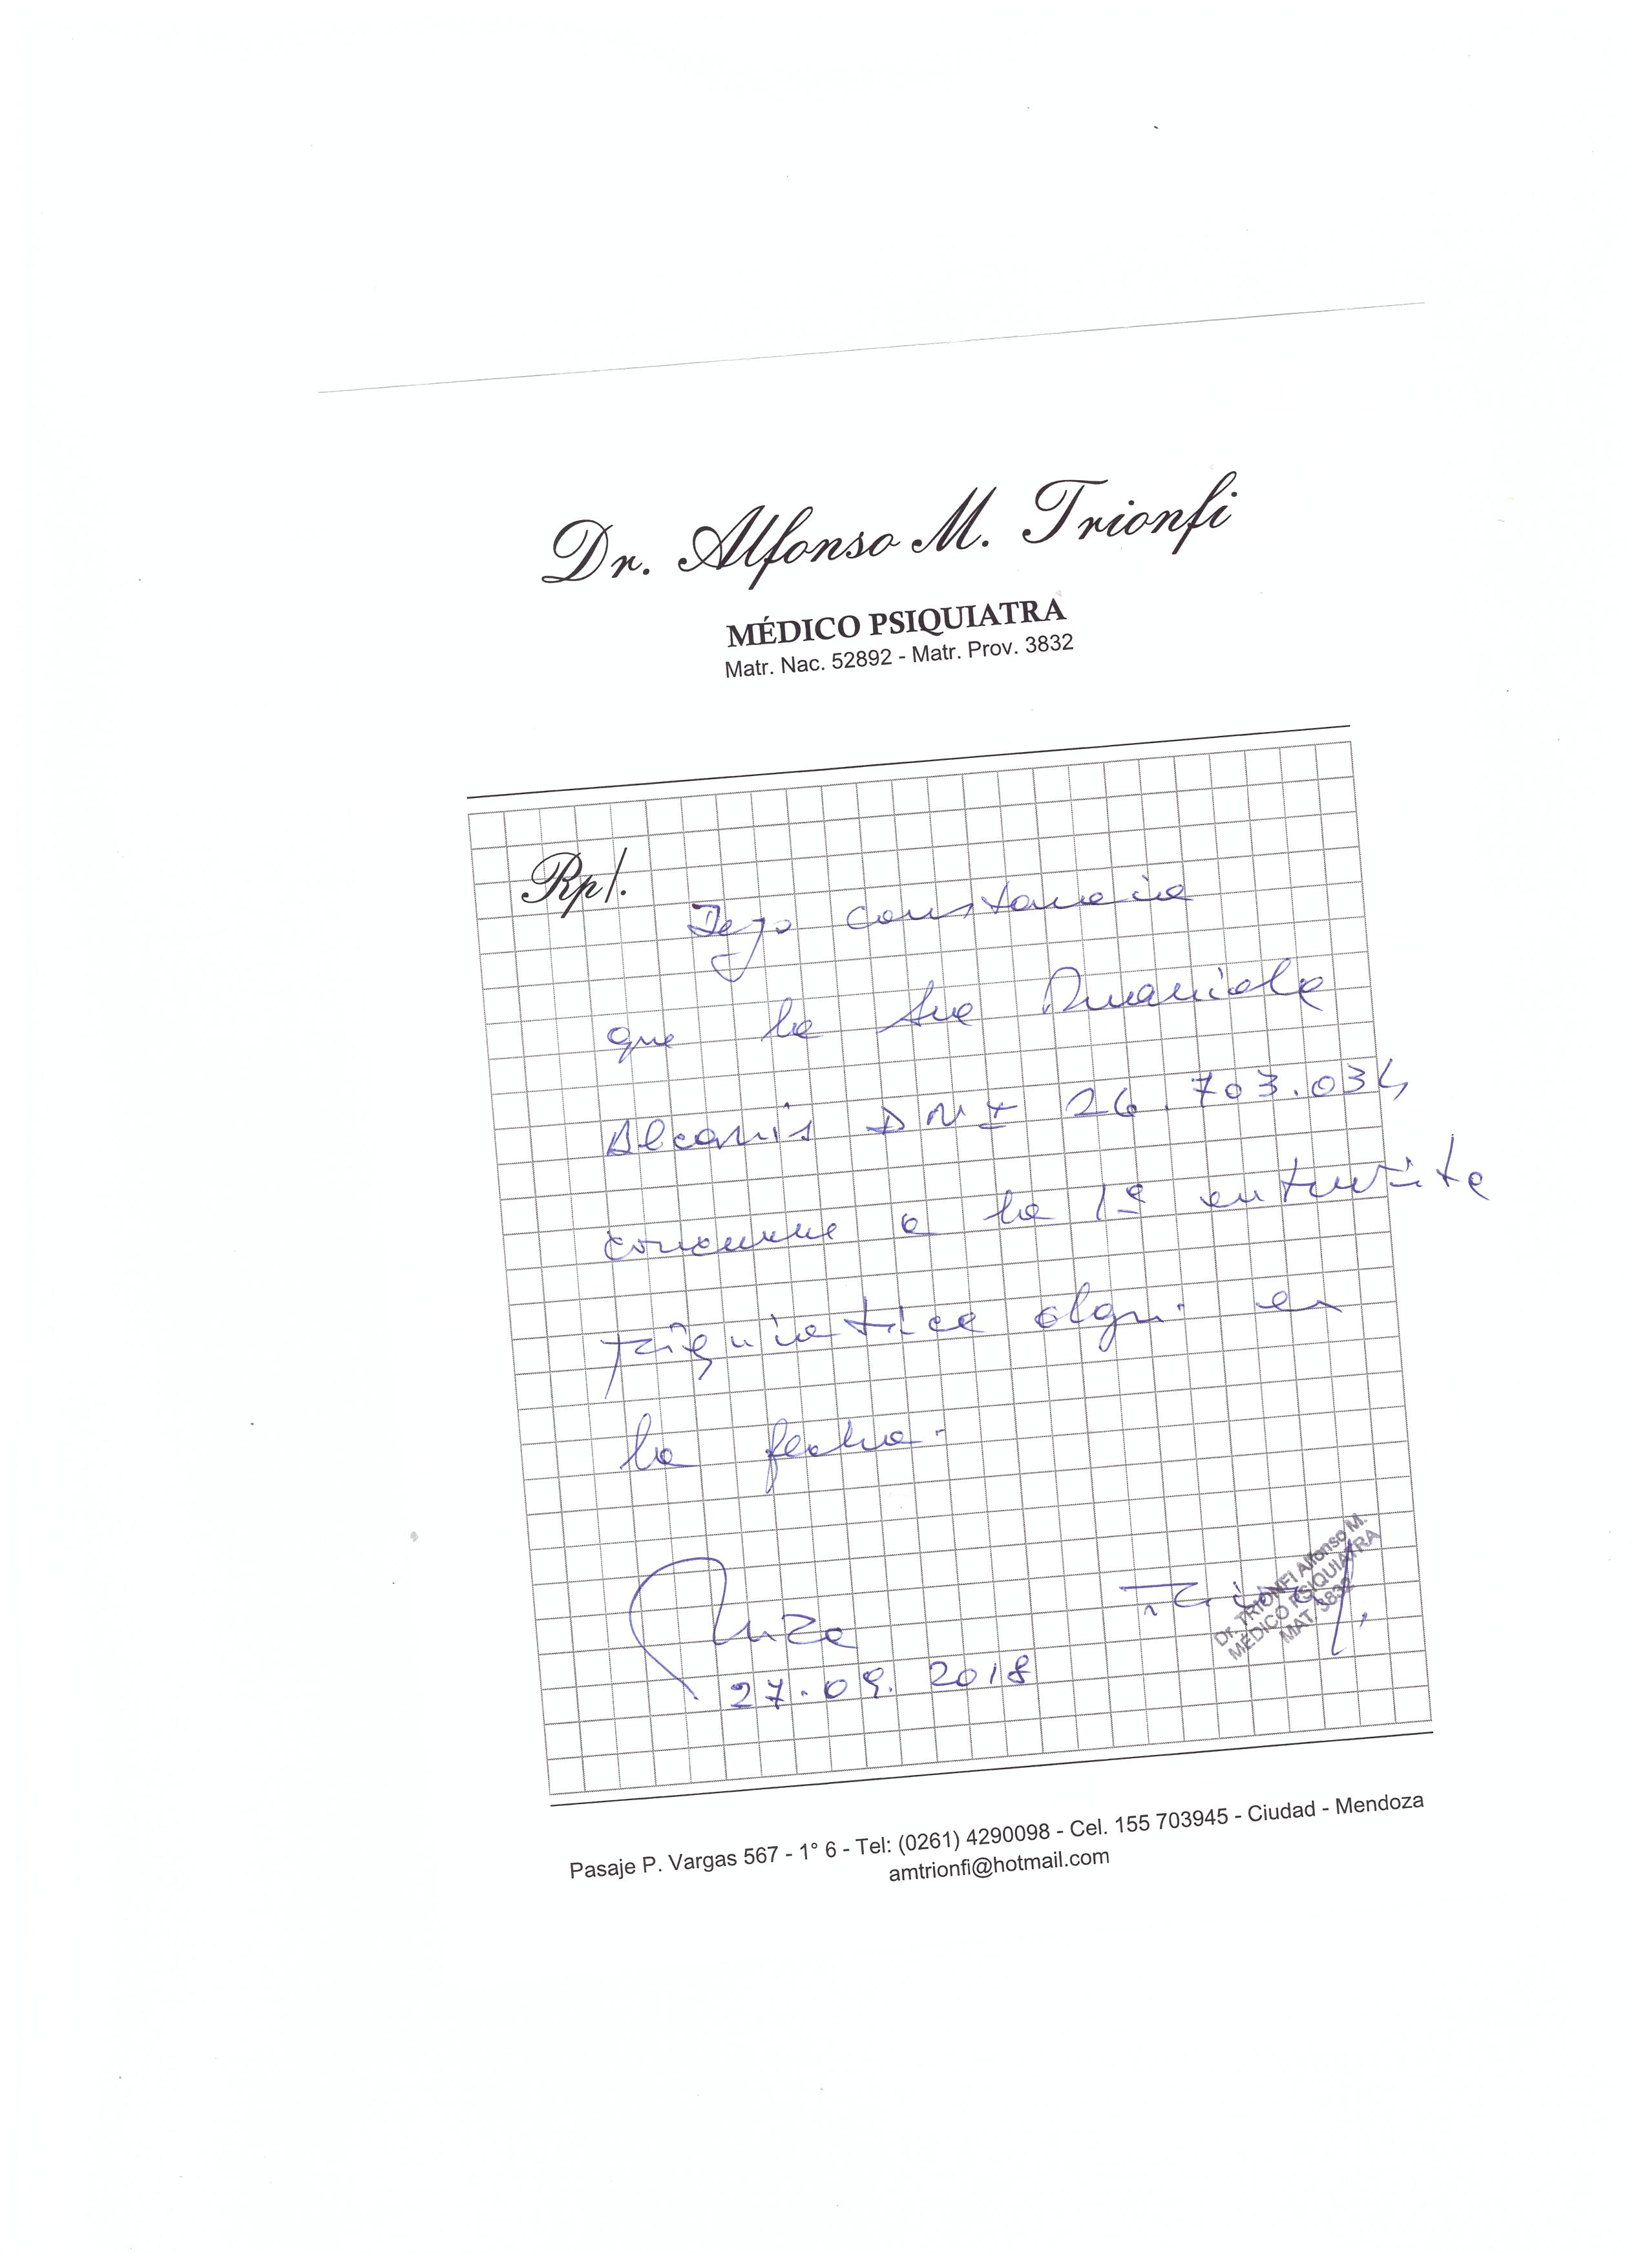 Dr. Alfonso M. Trionfi
MÉDICO PSIQUIATRA
Matr. Nac. 52892 - Matr. Prov. 3832
Rp/.
Dejo constancia
que la Sra
Alcanis DNI 26.703.034
concurre a la 1ª entrevista
psiquiatrica en
la fecha.
Mza
27.09.2018
Dr. TRIONFI Alfonso M.
MÉDICO PSIQUIATRA
MAT. 3832
Pasaje P. Vargas 567 - 1° 6 - Tel: (0261) 4290098 - Cel. 155 703945 - Ciudad - Mendoza
amtrionfi@hotmail.com